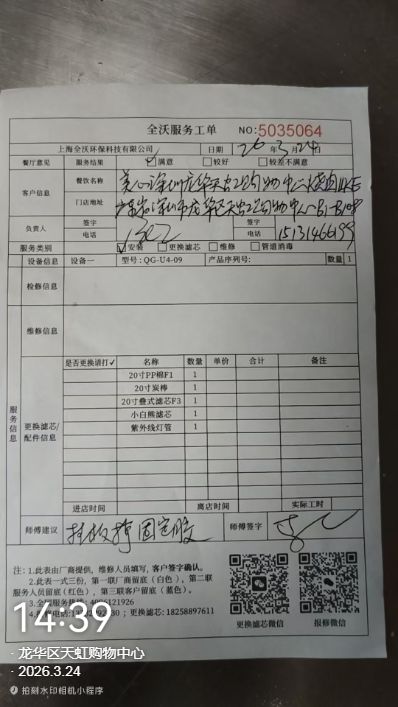 全沃服务工单 NO:5035064
上海全沃环保科技有限公司 日期 26 年 3 月 24 日
餐厅意见 服务结果 满意 较好 较差不满意
客户信息 餐饮名称
门店地址
负责人 签字 签字
电话 电话 15131466199
服务类别 安装 更换滤芯 维修 管道消毒
设备信息 设备一 型号:QG-U4-09 产品序列号: 数量 1
检修信息
维修信息
服务信息
更换滤芯/配件信息
是否更换请打√ 名称 数量 单价 合计 备注
20寸PP棉F1 1
20寸炭棒 1
20寸叠式滤芯F3 1
小白熊滤芯 1
紫外线灯管 1
进店时间 离店时间 实际工时
师傅建议 固定胶 师傅签字
注:1.此表由厂商提供,维修人员填写,客户签字确认。
2.此表一式三份,第一联厂商留底(白色),第二联
服务人员留底(红色),第三联客户留底(蓝色)。
更换滤芯:18258897611
更换滤芯微信 报修微信
14:39
龙华区天虹购物中心
2026.3.24
拍刻水印相机小程序